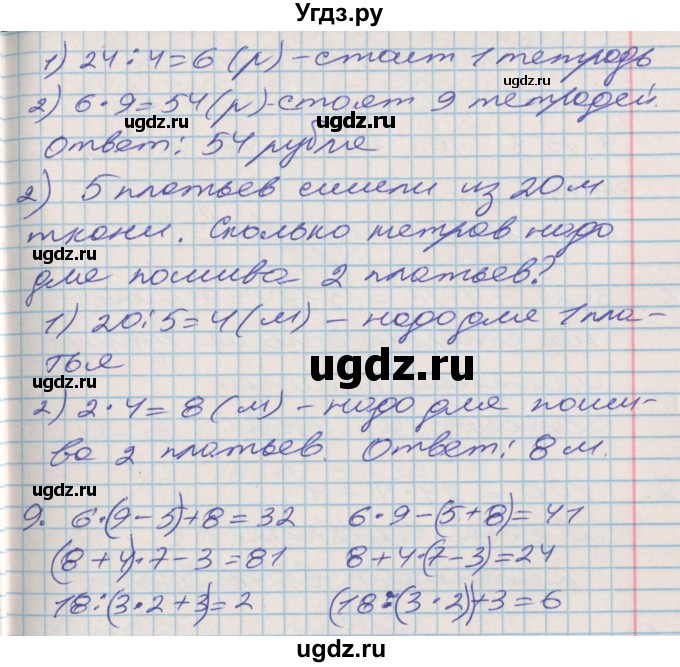 Угдз.ру
1) 24 : 4 = 6 (р) – стоит 1 тетрадь
ugdz.ru
2) 6 · 9 = 54 (р) – стоят 9 тетрадей.
ugdz.ru ugdz.ru
Ответ: 54 рубля
ugdz.ru
2) 5 платьев сшили из 20 м
ткани. Сколько метров надо
ugdz.ru ugdz.ru
для пошива 2 платьев?
1) 20 : 5 = 4 (м) – надо для 1 пла-
тья
ugdz.ru
ugdz.ru
2) 2 · 4 = 8 (м) – надо для поши-
ugdz.ru
ва 2 платьев. Ответ: 8 м.
ugdz.ru ugdz.ru
9. 6·(9 – 5) + 8 = 32 6 · 9 – (5 + 8) = 41
(8 + 4) · 7 – 3 = 81 8 + 4 · (7 – 3) = 24
18 : (3 · 2 + 3) = 2 (18 : (3 · 2)) + 3 = 6
ugdz.ru ugdz.ru